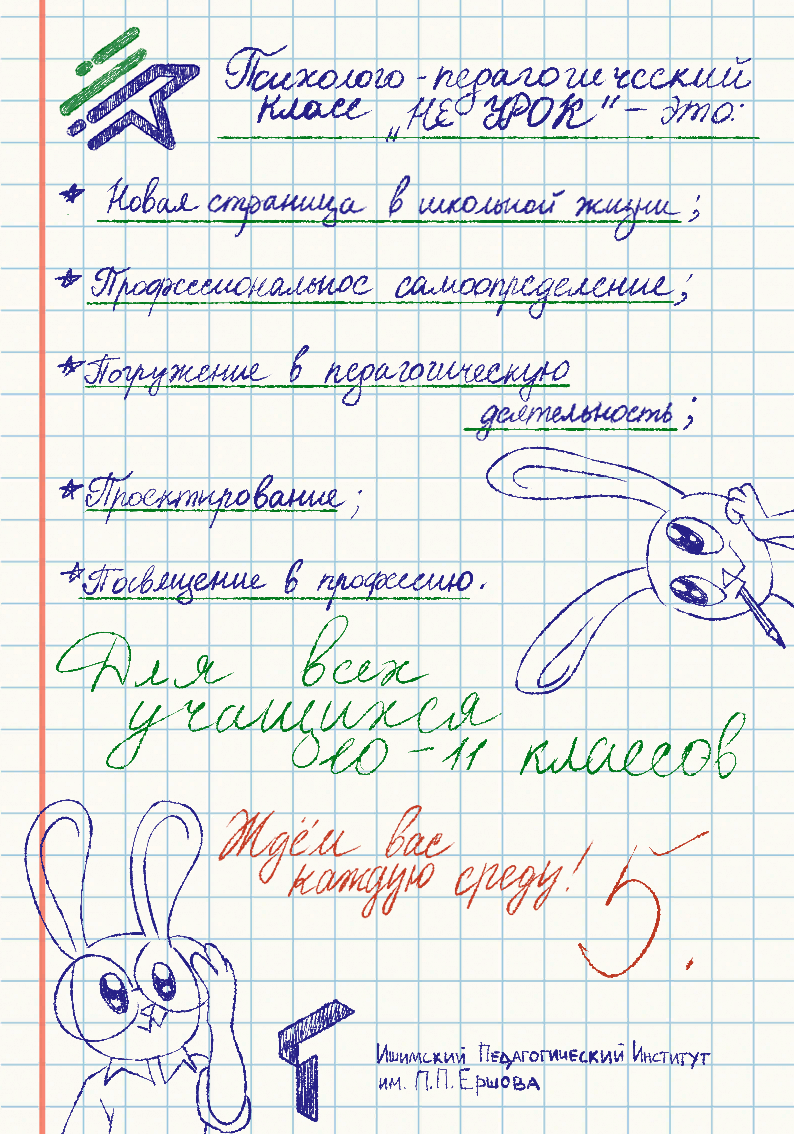 Психолого-педагогический
класс „НЕ УРОК" – это:
Новая страница в школьной жизни;
Профессиональное самоопределение;
Погружение в педагогическую
деятельность;
Проектирование;
Посвящение в профессию.
Для всех
учащихся
10-11 классов
Ждём вас
каждую среду!
5.
Ишимский Педагогический Институт
им. П.П. Ершова